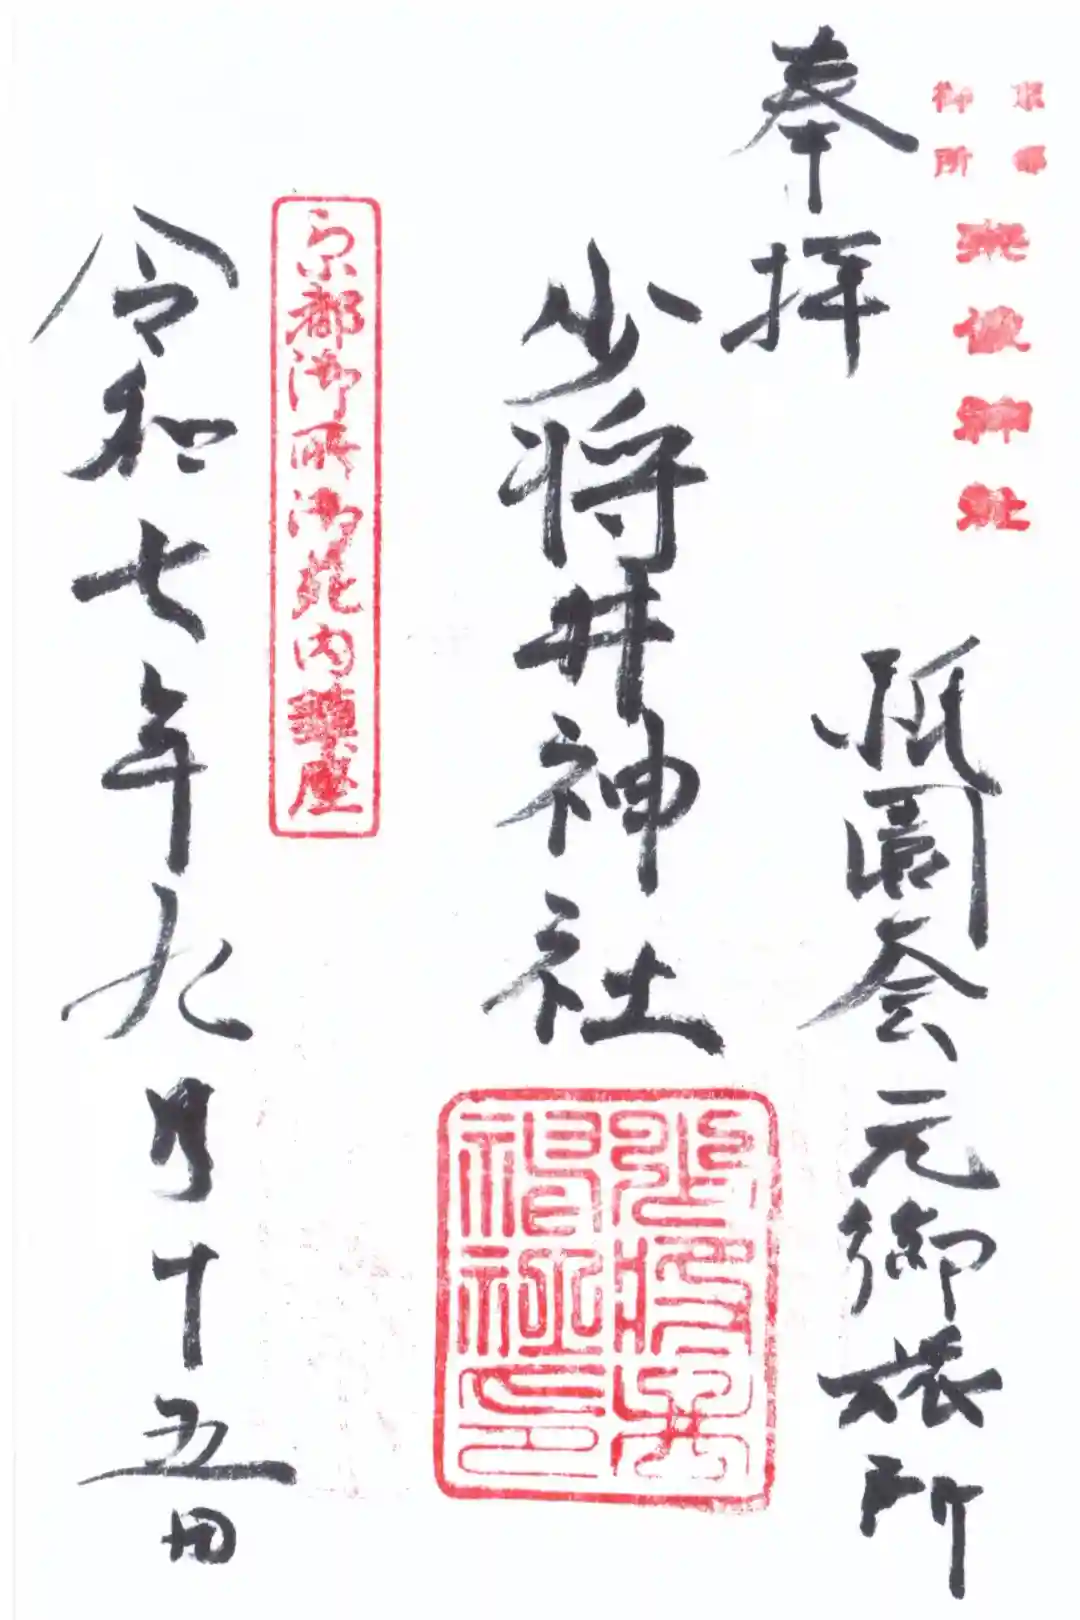 京都
御所
宗像神社
奉拝
祇園会元御旅所
少将井神社
少将井
神社印
京都御所御苑内鎮座
令和七年九月十五日